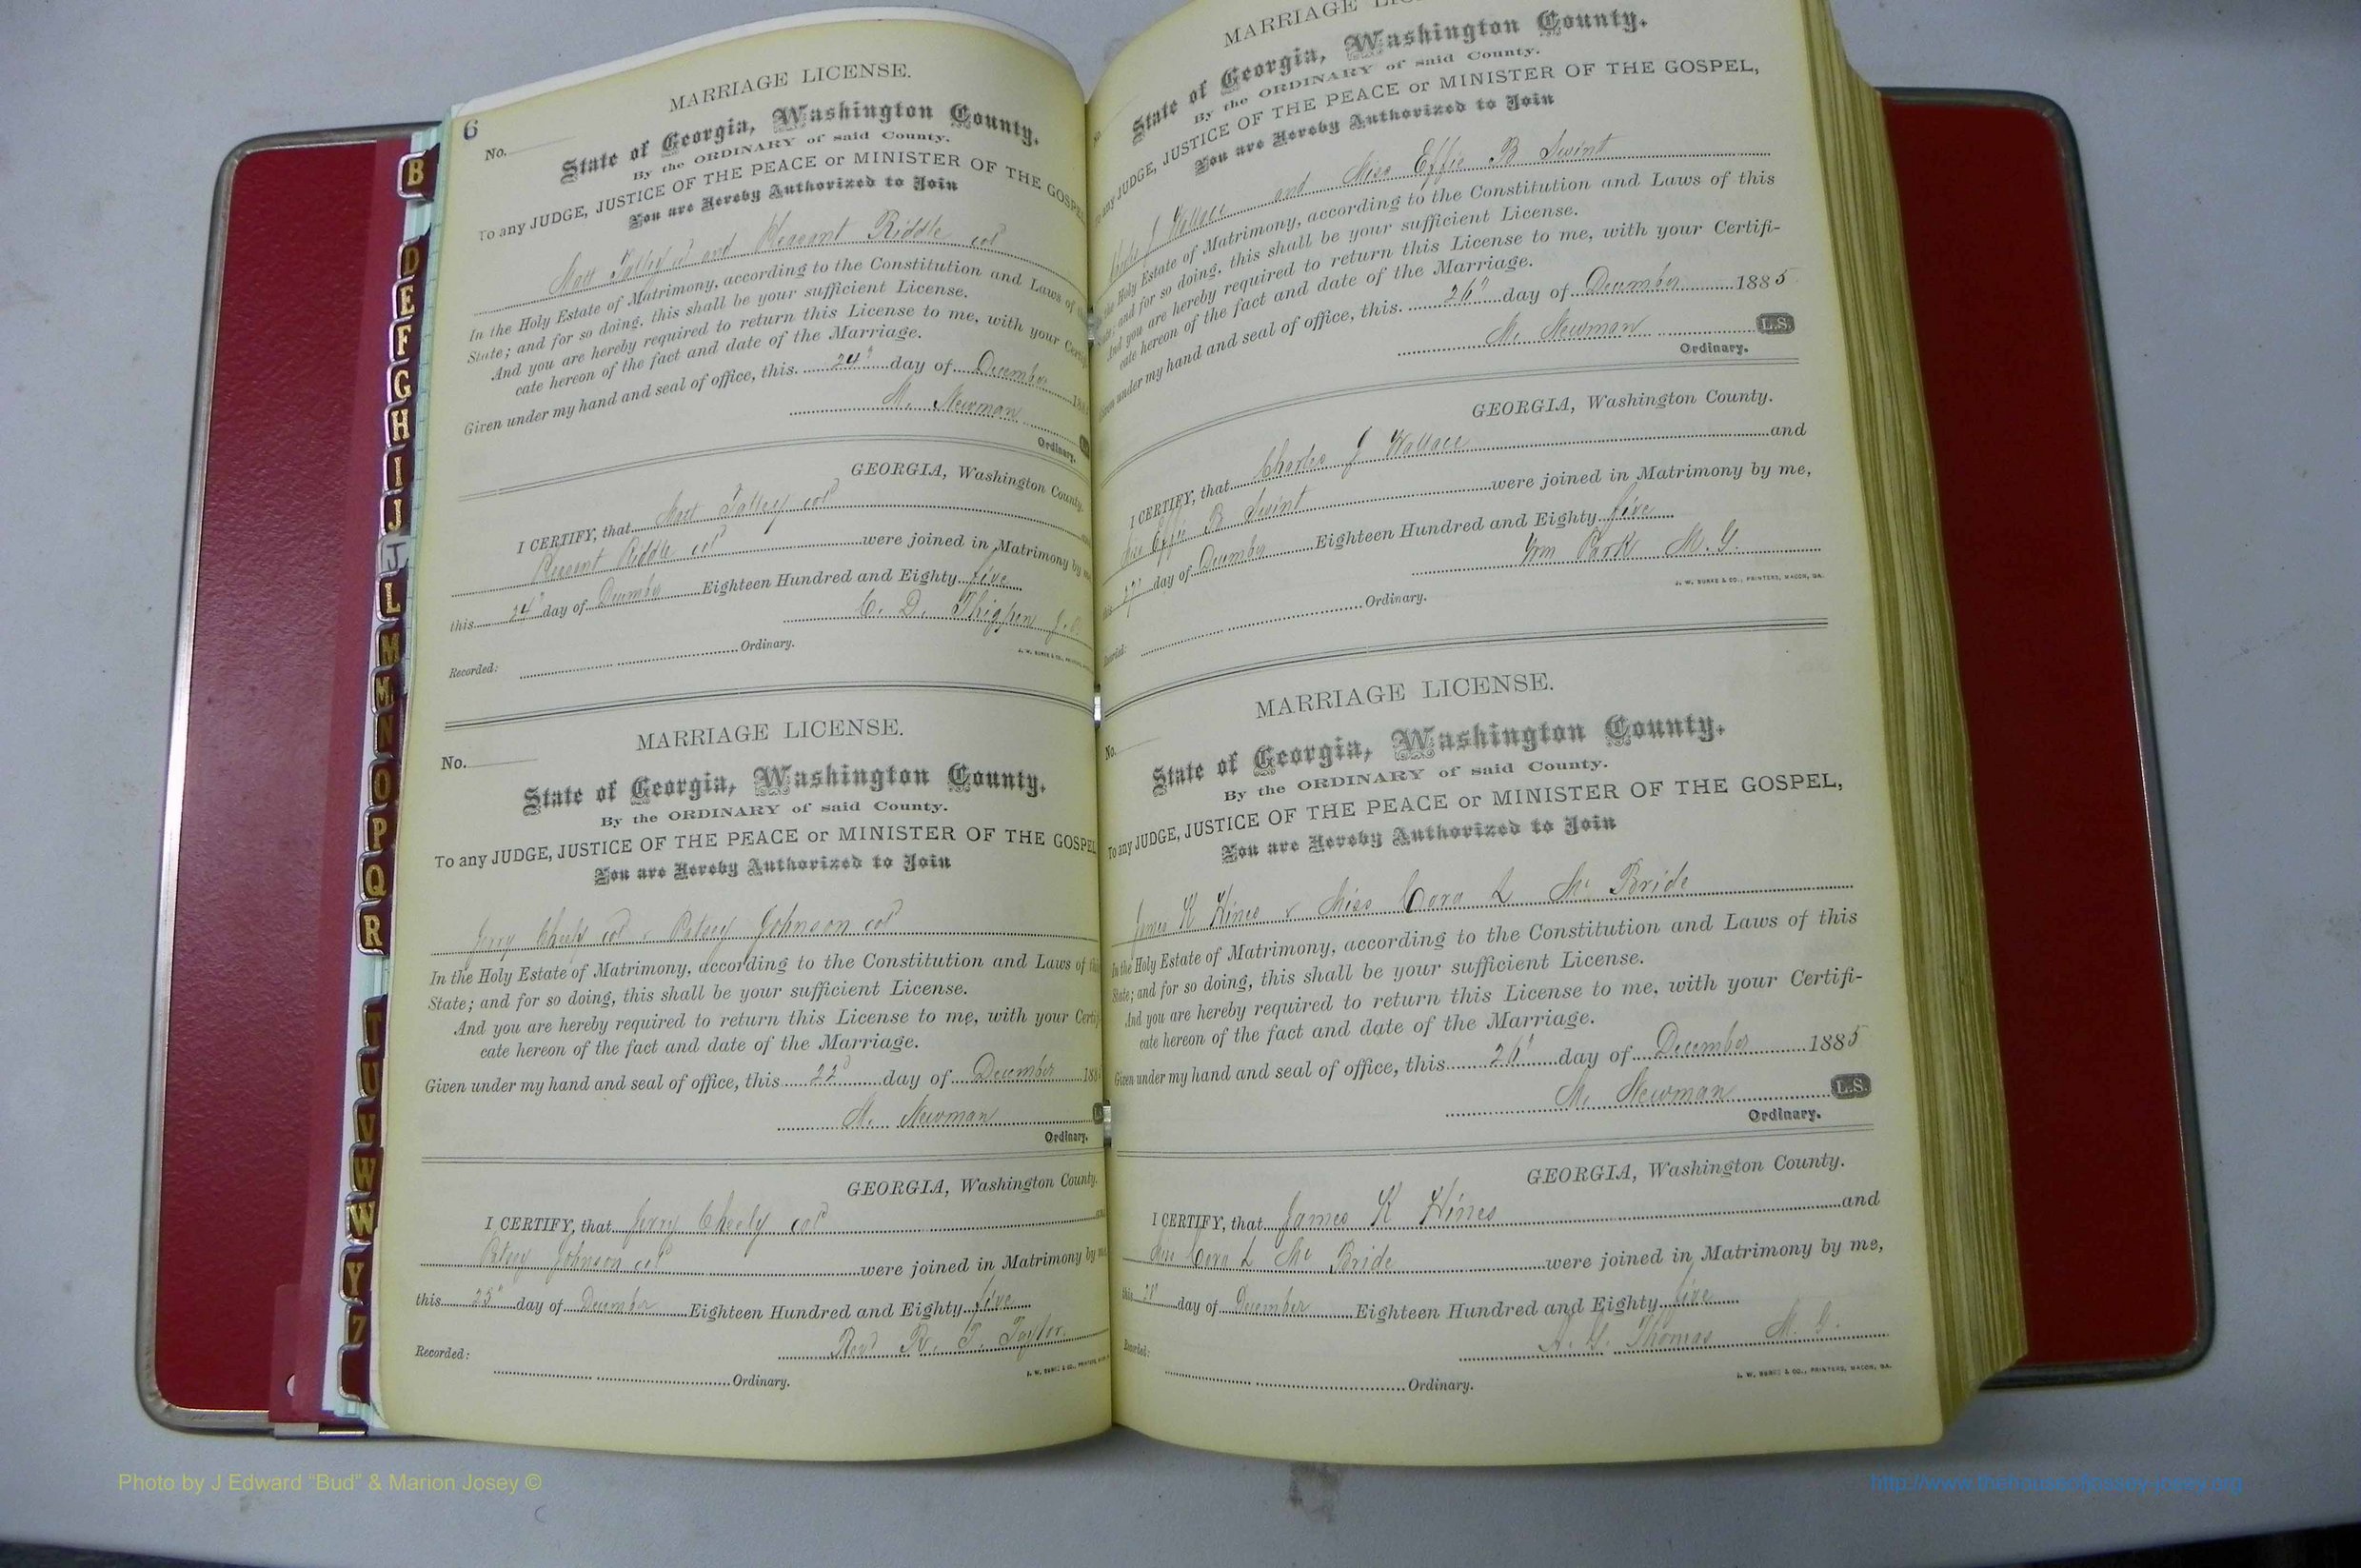 6
MARRIAGE LICENSE.
No.
State of Georgia, Washington County.
By the ORDINARY of said County.
To any JUDGE, JUSTICE OF THE PEACE or MINISTER OF THE GOSPEL
You are Hereby Authorized to Join
Matt Talley col and Pleasant Riddle col
In the Holy Estate of Matrimony, according to the Constitution and Laws of
State; and for so doing, this shall be your sufficient License.
And you are hereby required to return this License to me, with your Certifi
cate hereon of the fact and date of the Marriage.
Given under my hand and seal of office, this 24" day of December 188
M. Newman
Ordinary.
GEORGIA, Washington County.
I CERTIFY, that Matt Talley col
Pleasant Riddle col were joined in Matrimony by me
this 24" day of December Eighteen Hundred and Eighty five
C. D. Thigpen J.P.
Recorded:
Ordinary.
J. W. BURKE & CO., PRINTERS,
MARRIAGE LICENSE.
No.
State of Georgia, Washington County.
By the ORDINARY of said County.
To any JUDGE, JUSTICE OF THE PEACE or MINISTER OF THE GOSPEL
You are Hereby Authorized to Join
Jerry Cheely col & Patsey Johnson col
In the Holy Estate of Matrimony, according to the Constitution and Laws of this
State; and for so doing, this shall be your sufficient License.
And you are hereby required to return this License to me, with your Certifi
cate hereon of the fact and date of the Marriage.
Given under my hand and seal of office, this 22" day of December 188
M. Newman
Ordinary.
GEORGIA, Washington County.
I CERTIFY, that Jerry Cheely col and
Patsey Johnson col were joined in Matrimony by me
this 25" day of December Eighteen Hundred and Eighty five
Revd R. T. Taylor
Recorded:
Ordinary.
J. W. BURKE & CO., PRINTERS,
MARRIAGE LIC
No.
State of Georgia, Washington County.
By the ORDINARY of said County.
To any JUDGE, JUSTICE OF THE PEACE or MINISTER OF THE GOSPEL,
You are Hereby Authorized to Join
Charles J Wallace and Miss Effie B Swint
In the Holy Estate of Matrimony, according to the Constitution and Laws of this
State; and for so doing, this shall be your sufficient License.
And you are hereby required to return this License to me, with your Certifi-
cate hereon of the fact and date of the Marriage.
Given under my hand and seal of office, this 26" day of December 1885
M. Newman L.S.
Ordinary.
GEORGIA, Washington County.
I CERTIFY, that Charles J Wallace and
Miss Effie B Swint were joined in Matrimony by me,
this 27" day of December Eighteen Hundred and Eighty five
Wm Park M. G.
J. W. BURKE & CO., PRINTERS, MACON, GA.
Recorded:
Ordinary.
MARRIAGE LICENSE.
No.
State of Georgia, Washington County.
By the ORDINARY of said County.
To any JUDGE, JUSTICE OF THE PEACE or MINISTER OF THE GOSPEL,
You are Hereby Authorized to Join
James K Hines & Miss Cora L Mc Bride
In the Holy Estate of Matrimony, according to the Constitution and Laws of this
State; and for so doing, this shall be your sufficient License.
And you are hereby required to return this License to me, with your Certifi-
cate hereon of the fact and date of the Marriage.
Given under my hand and seal of office, this 26" day of December 1885
M. Newman L.S.
Ordinary.
GEORGIA, Washington County.
I CERTIFY, that James K Hines and
Miss Cora L Mc Bride were joined in Matrimony by me,
this day of December Eighteen Hundred and Eighty five
A. G. Thomas M. G.
Recorded:
Ordinary.
J. W. BURKE & CO., PRINTERS, MACON, GA.
B
D
E
F
G
H
I
J
J
L
M
M
N
O
P
Q
R
T
U
V
W
W
Y
Z
Photo by J Edward “Bud” & Marion Josey ©
http://www.thehouseofjossey-josey.org